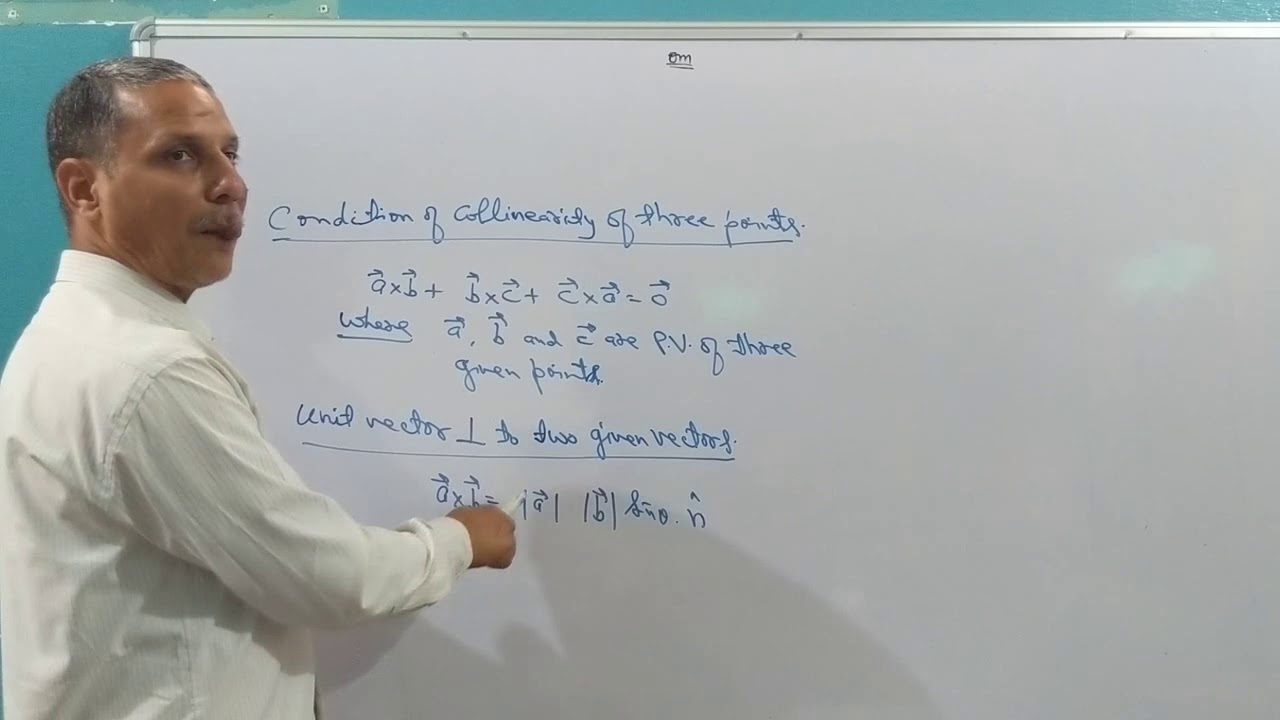 om
Condition of Collinearity of three points.
a⃗×b⃗+ b⃗×c⃗+ c⃗×a⃗=0⃗
where a⃗, b⃗ and c⃗ are P.V. of three
given points.
Unit vector ⊥ to two given vectors.
a⃗×b⃗= |a⃗| |b⃗| Sinθ. n̂